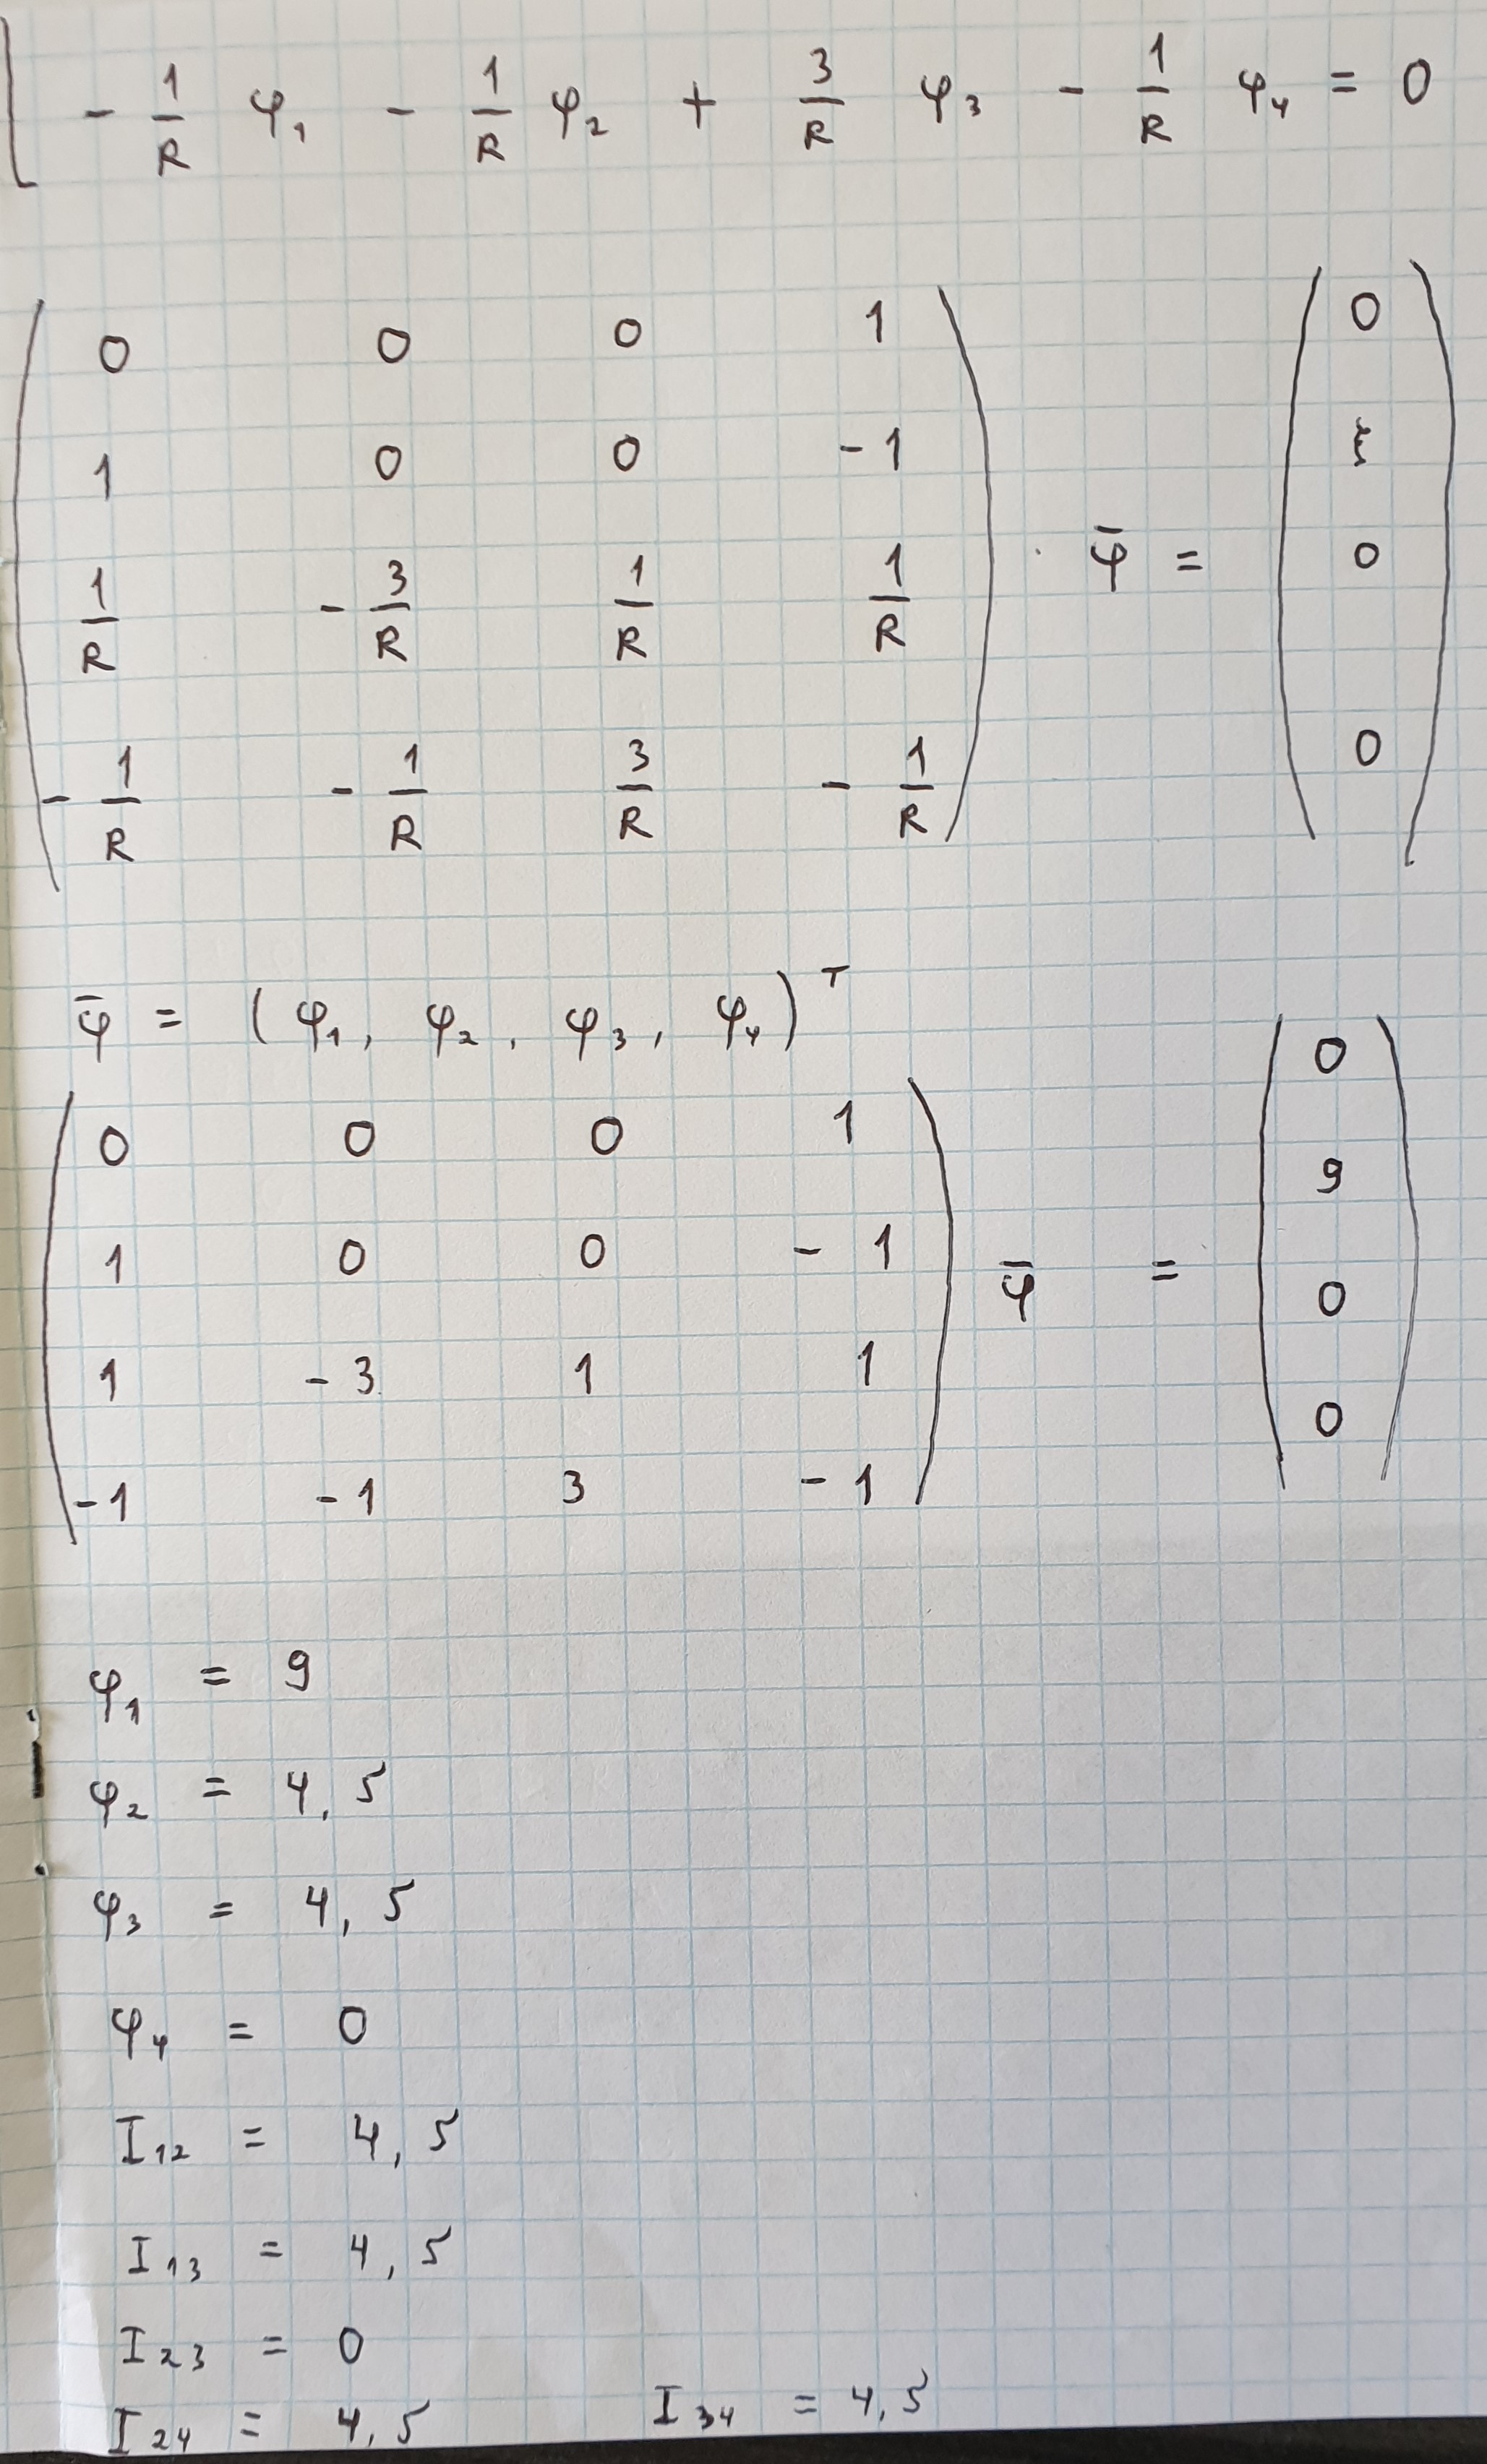 - 1/R φ₁ - 1/R φ₂ + 3/R φ₃ - 1/R φ₄ = 0
( 0 0 0 1 ) ( 0 )
( 1 0 0 -1 ) ( ξ )
( 1/R - 3/R 1/R 1/R ) · φ̄ = ( 0 )
( - 1/R - 1/R 3/R - 1/R ) ( 0 )
φ̄ = ( φ₁, φ₂, φ₃, φ₄ )ᵀ
( 0 0 0 1 ) ( 0 )
( 1 0 0 - 1 ) φ̄ = ( 9 )
( 1 - 3 1 1 ) ( 0 )
( -1 -1 3 - 1 ) ( 0 )
φ₁ = 9
φ₂ = 4,5
φ₃ = 4,5
φ₄ = 0
I₁₂ = 4,5
I₁₃ = 4,5
I₂₃ = 0
I₂₄ = 4,5 I₃₄ = 4,5